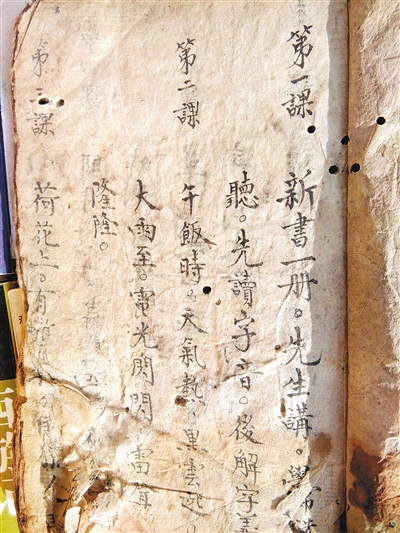 第一課
新書一册。先生講。學生
聽。先讀字音。後解字義
第二課
午飯時。天氣熱。黑雲起。
大雨至。電光閃閃。雷聲
隆隆。
第三課
荷花上。有